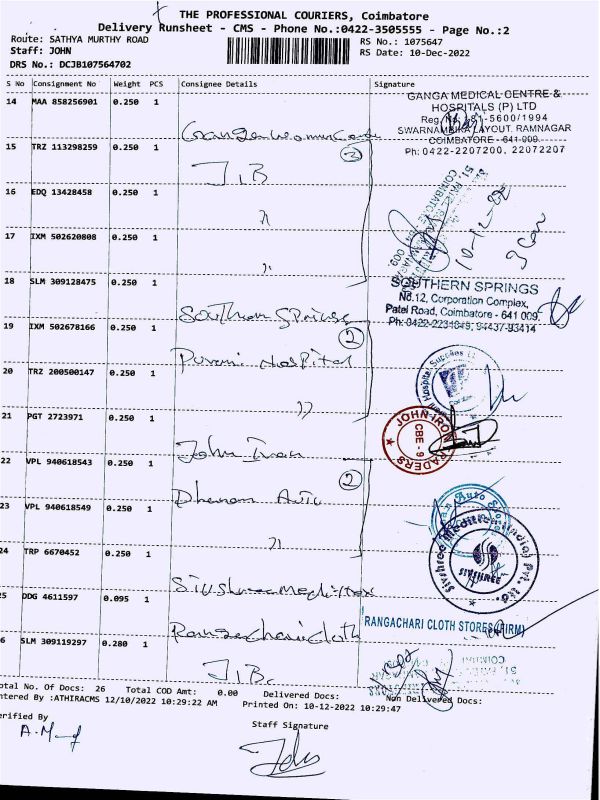 THE PROFESSIONAL COURIERS, Coimbatore
Delivery Runsheet - CMS - Phone No.:0422-3505555 - Page No.:2
Route: SATHYA MURTHY ROAD
RS No.: 1075647
Staff: JOHN
RS Date: 10-Dec-2022
DRS No.: DCJB107564702
S No Consignment No Weight PCS Consignee Details Signature
14 MAA 858256901 0.250 1
GANGA MEDICAL CENTRE &
HOSPITALS (P) LTD
Reg. No. 181-5600/1994
SWARNAMBIKA LAYOUT, RAMNAGAR
COIMBATORE - 641 009.
Ph: 0422-2207200, 22072207
15 TRZ 113298259 0.250 1
J.B
3
16 EDQ 13428458 0.250 1
"
10-12-22
17 IXM 502620808 0.250 1
"
18 SLM 309128475 0.250 1
Southern Springs
SOUTHERN SPRINGS
No.12, Corporation Complex,
Patel Road, Coimbatore - 641 009.
19 IXM 502678166 0.250 1
Purani Hospital
2
20 TRZ 200500147 0.250 1
"
Hospital Supplies
21 PGT 2723971 0.250 1
John Iron
JOHN IRON TRADERS
CBE - 9
22 VPL 940618543 0.250 1
2
23 VPL 940618549 0.250 1
"
24 TRP 6670452 0.250 1
Sivshree Meditex
Sivshree Meditex (India) Pvt. Ltd.
SIVSHREE
25 DDG 4611597 0.095 1
Rangachari cloth
RANGACHARI CLOTH STORES (FIRM)
26 SLM 309119297 0.280 1
J.B.
Total No. Of Docs: 26 Total COD Amt: 0.00 Delivered Docs: Non Delivered Docs:
Entered By :ATHIRACMS 12/10/2022 10:29:22 AM Printed On: 10-12-2022 10:29:47
Verified By
Staff Signature